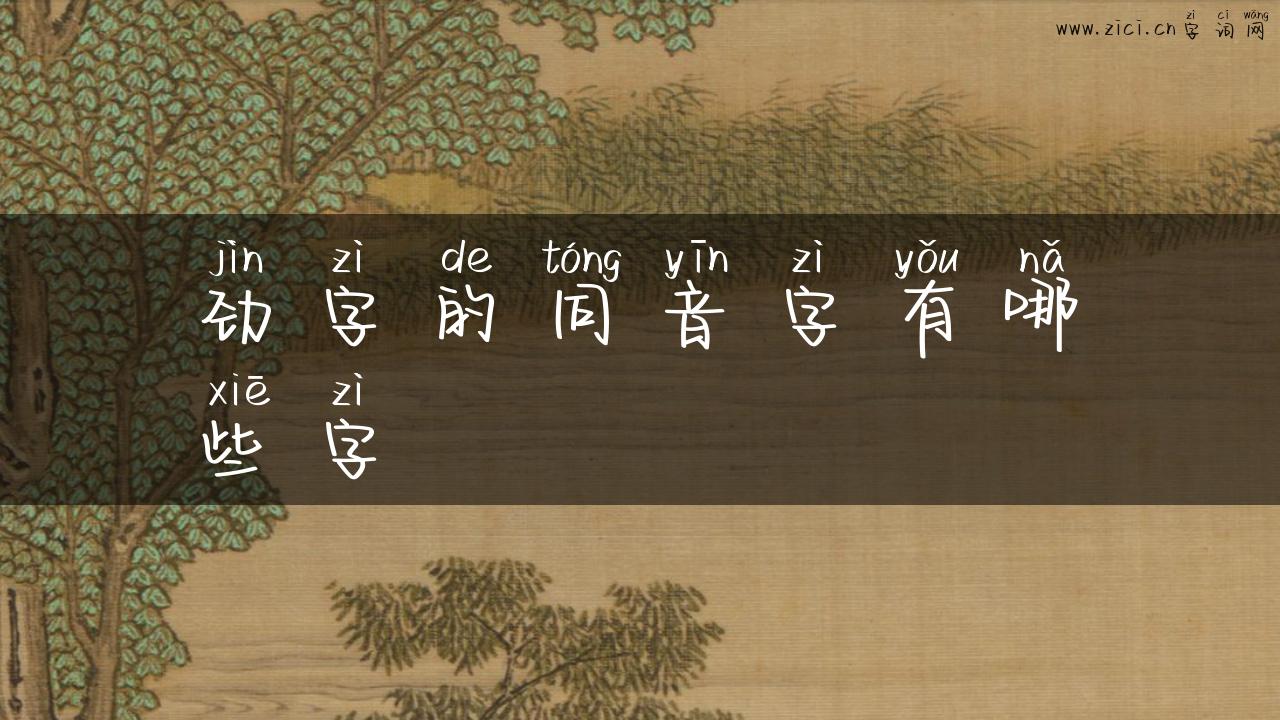 zì cí wǎng
www.zici.cn字词网
jìn zì de tóng yīn zì yǒu nǎ
劲字的同音字有哪
xiē zì
些字